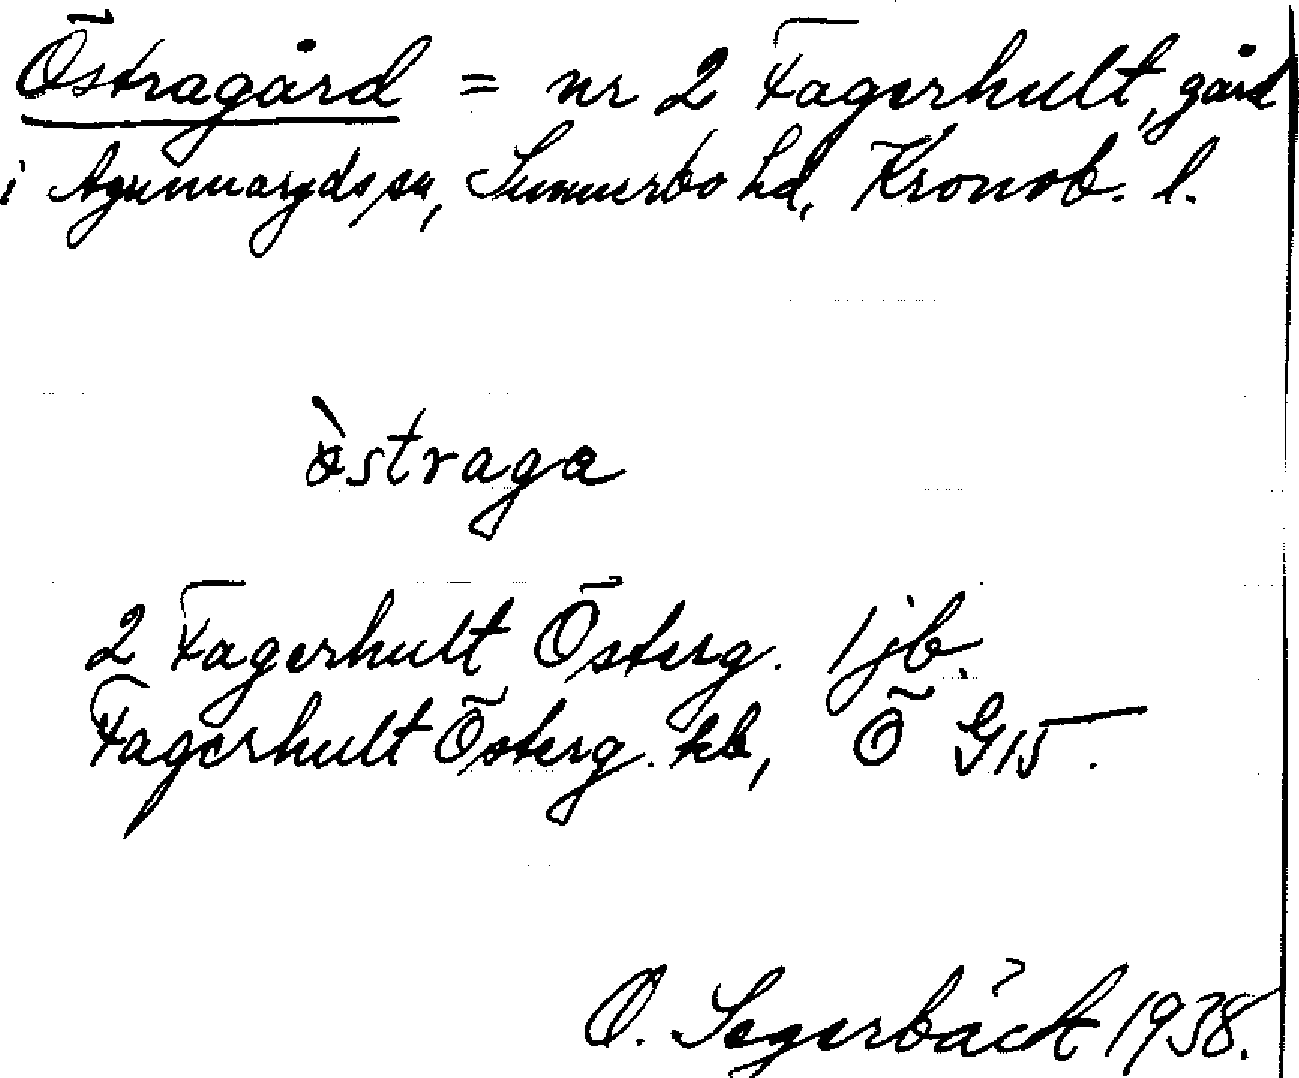 Östragård = nr 2 Fagerhult, gård
i Agunnaryds sn, Sunnerbo hd, Kronob. l.
östraga
2 Fagerhult Österg. 1 jb.
Fagerhult Österg. kb, Ö G15.
O. Segerbäck 1938.